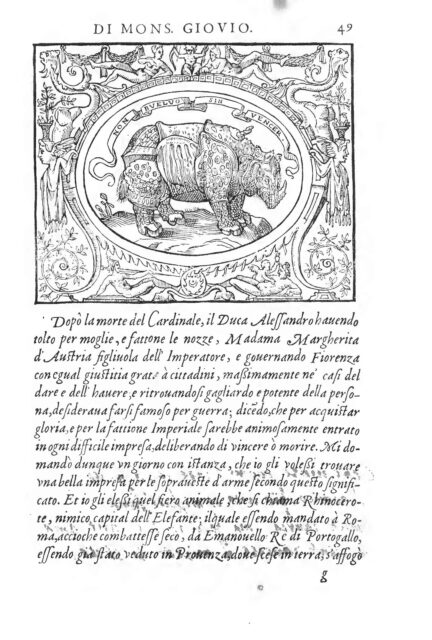 DI MONS. GIOVIO. 49
NON BVELVO SIN VENCER
Dopò la morte del Cardinale, il Duca Alessandro hauendo
tolto per moglie, e fattone le nozze, Madama Margherita
d'Austria figliuola dell'Imperatore, e gouernando Fiorenza
con egual giustitia grata à cittadini, maßimamente ne' casi del
dare e dell'hauere, e ritrouandosi gagliardo e potente della perso-
na, desideraua farsi famoso per guerra; dicēdo, che per acquistar
gloria, e per la fattione Imperiale sarebbe animosamente entrato
in ogni difficile impresa, deliberando di vincere ò morire. Mi do-
mandò dunque vn giorno con istanza, che io gli voleßi trouare
vna bella impresa per le sopraueste d'arme secondo questo signifi-
cato. Et io gli eleßi quel fiero animale, che si chiama Rhinocero-
te, nimico capital dell'Elefante; ilquale essendo mandato à Ro-
ma, accioche combattesse seco, da Emanouello Re di Portogallo,
essendo già stato veduto in Prouenza, doue scese in terra, s'affogò
g